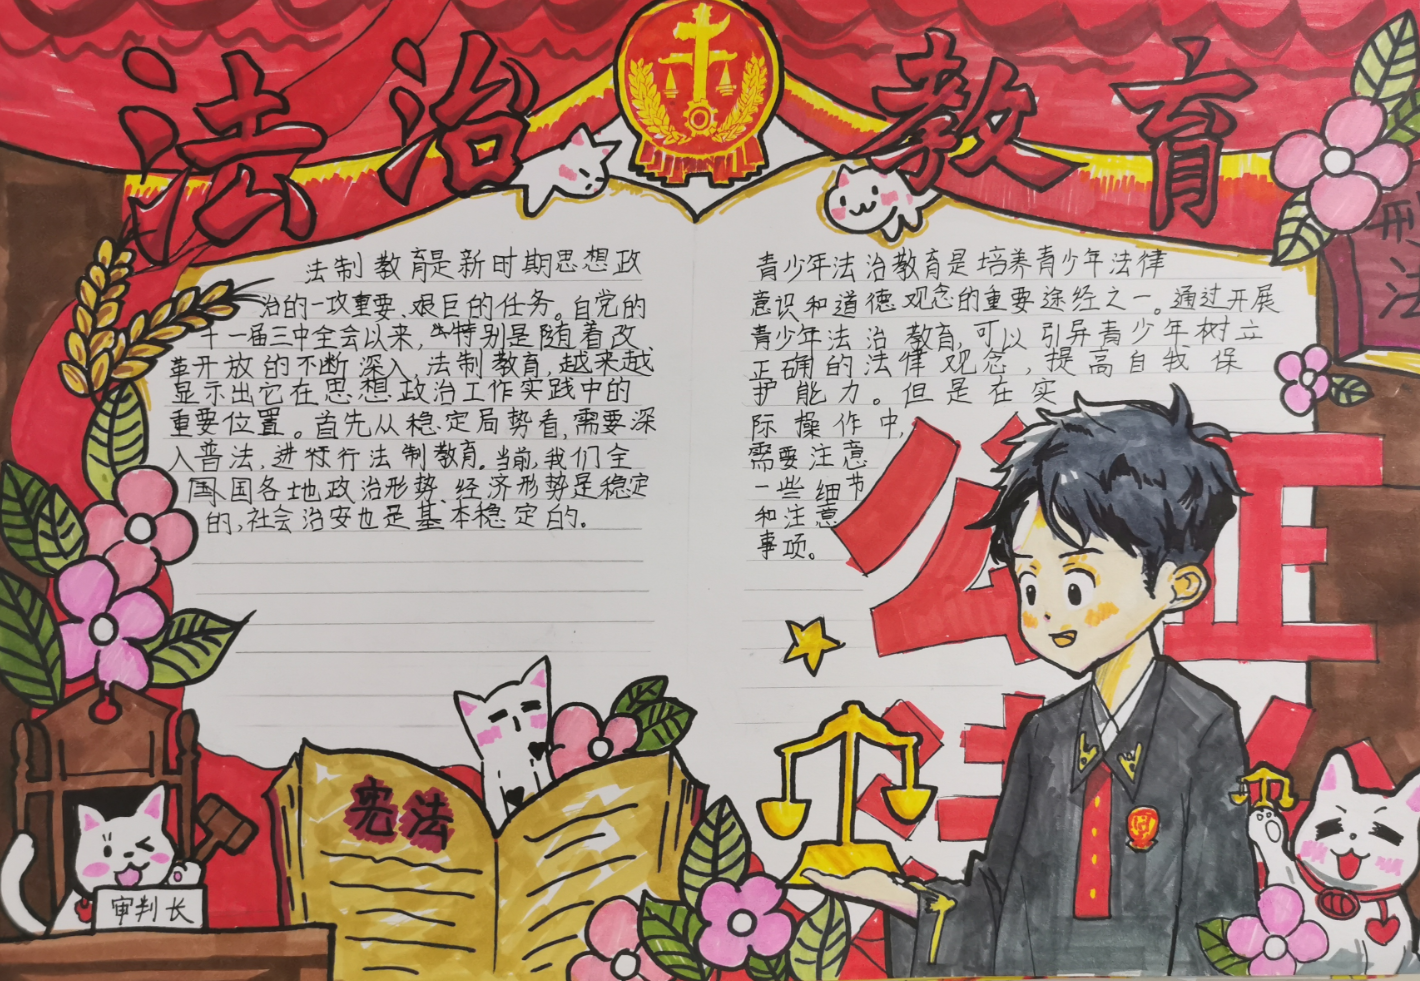 法治教育
法制教育是新时期思想政
治的一攻重要、艰巨的任务。自党的
十一届三中全会以来,特别是随着改
革开放的不断深入,法制教育,越来越
显示出它在思想政治工作实践中的
重要位置。首先从稳定局势看,需要深
入普法,进行法制教育。当前,我们全
国国各地政治形势、经济形势是稳定
的,社会治安也是基本稳定的。
青少年法治教育是培养青少年法律
意识和道德观念的重要途经之一。通过开展
青少年法治教育,可以引导青少年树立
正确的法律观念,提高自我保
护能力。但是在实
际操作中,
需要注意
一些细节
和注意
事项。
刑法
公正
法
宪法
审判长